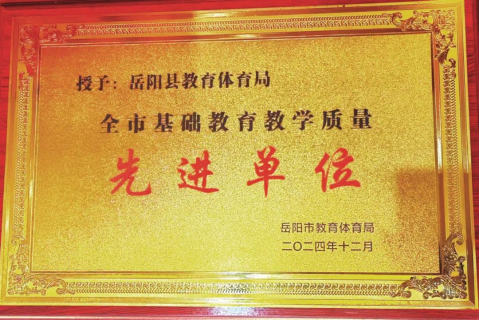 授予：岳阳县教育体育局
全市基础教育教学质量
先进单位
岳阳市教育体育局
二〇二四年十二月